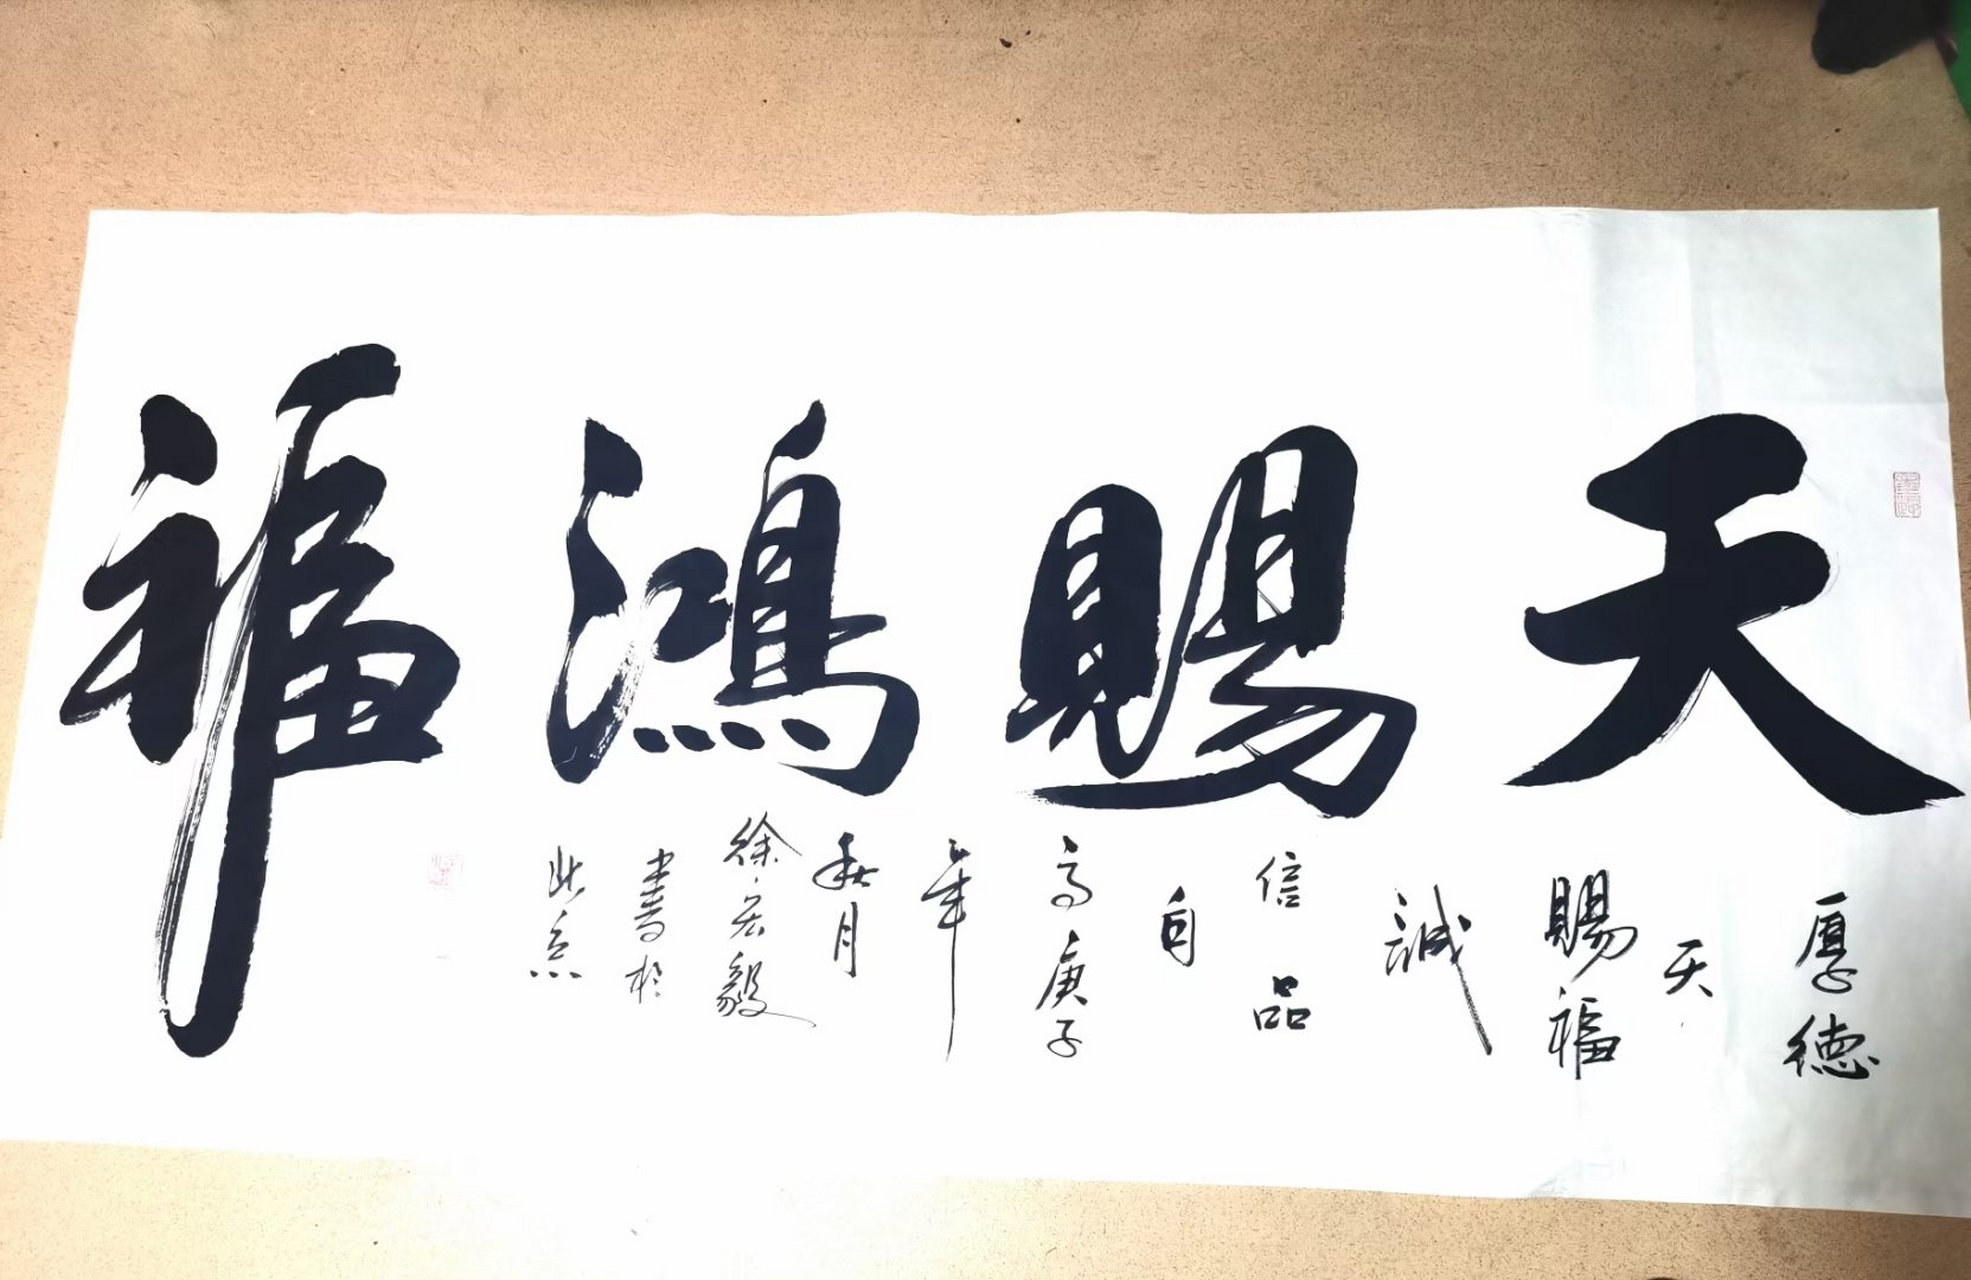 天賜鴻福
厚德
天
賜福
誠
信品
自
高庚子
年
秋月
徐宏毅
書於
北京